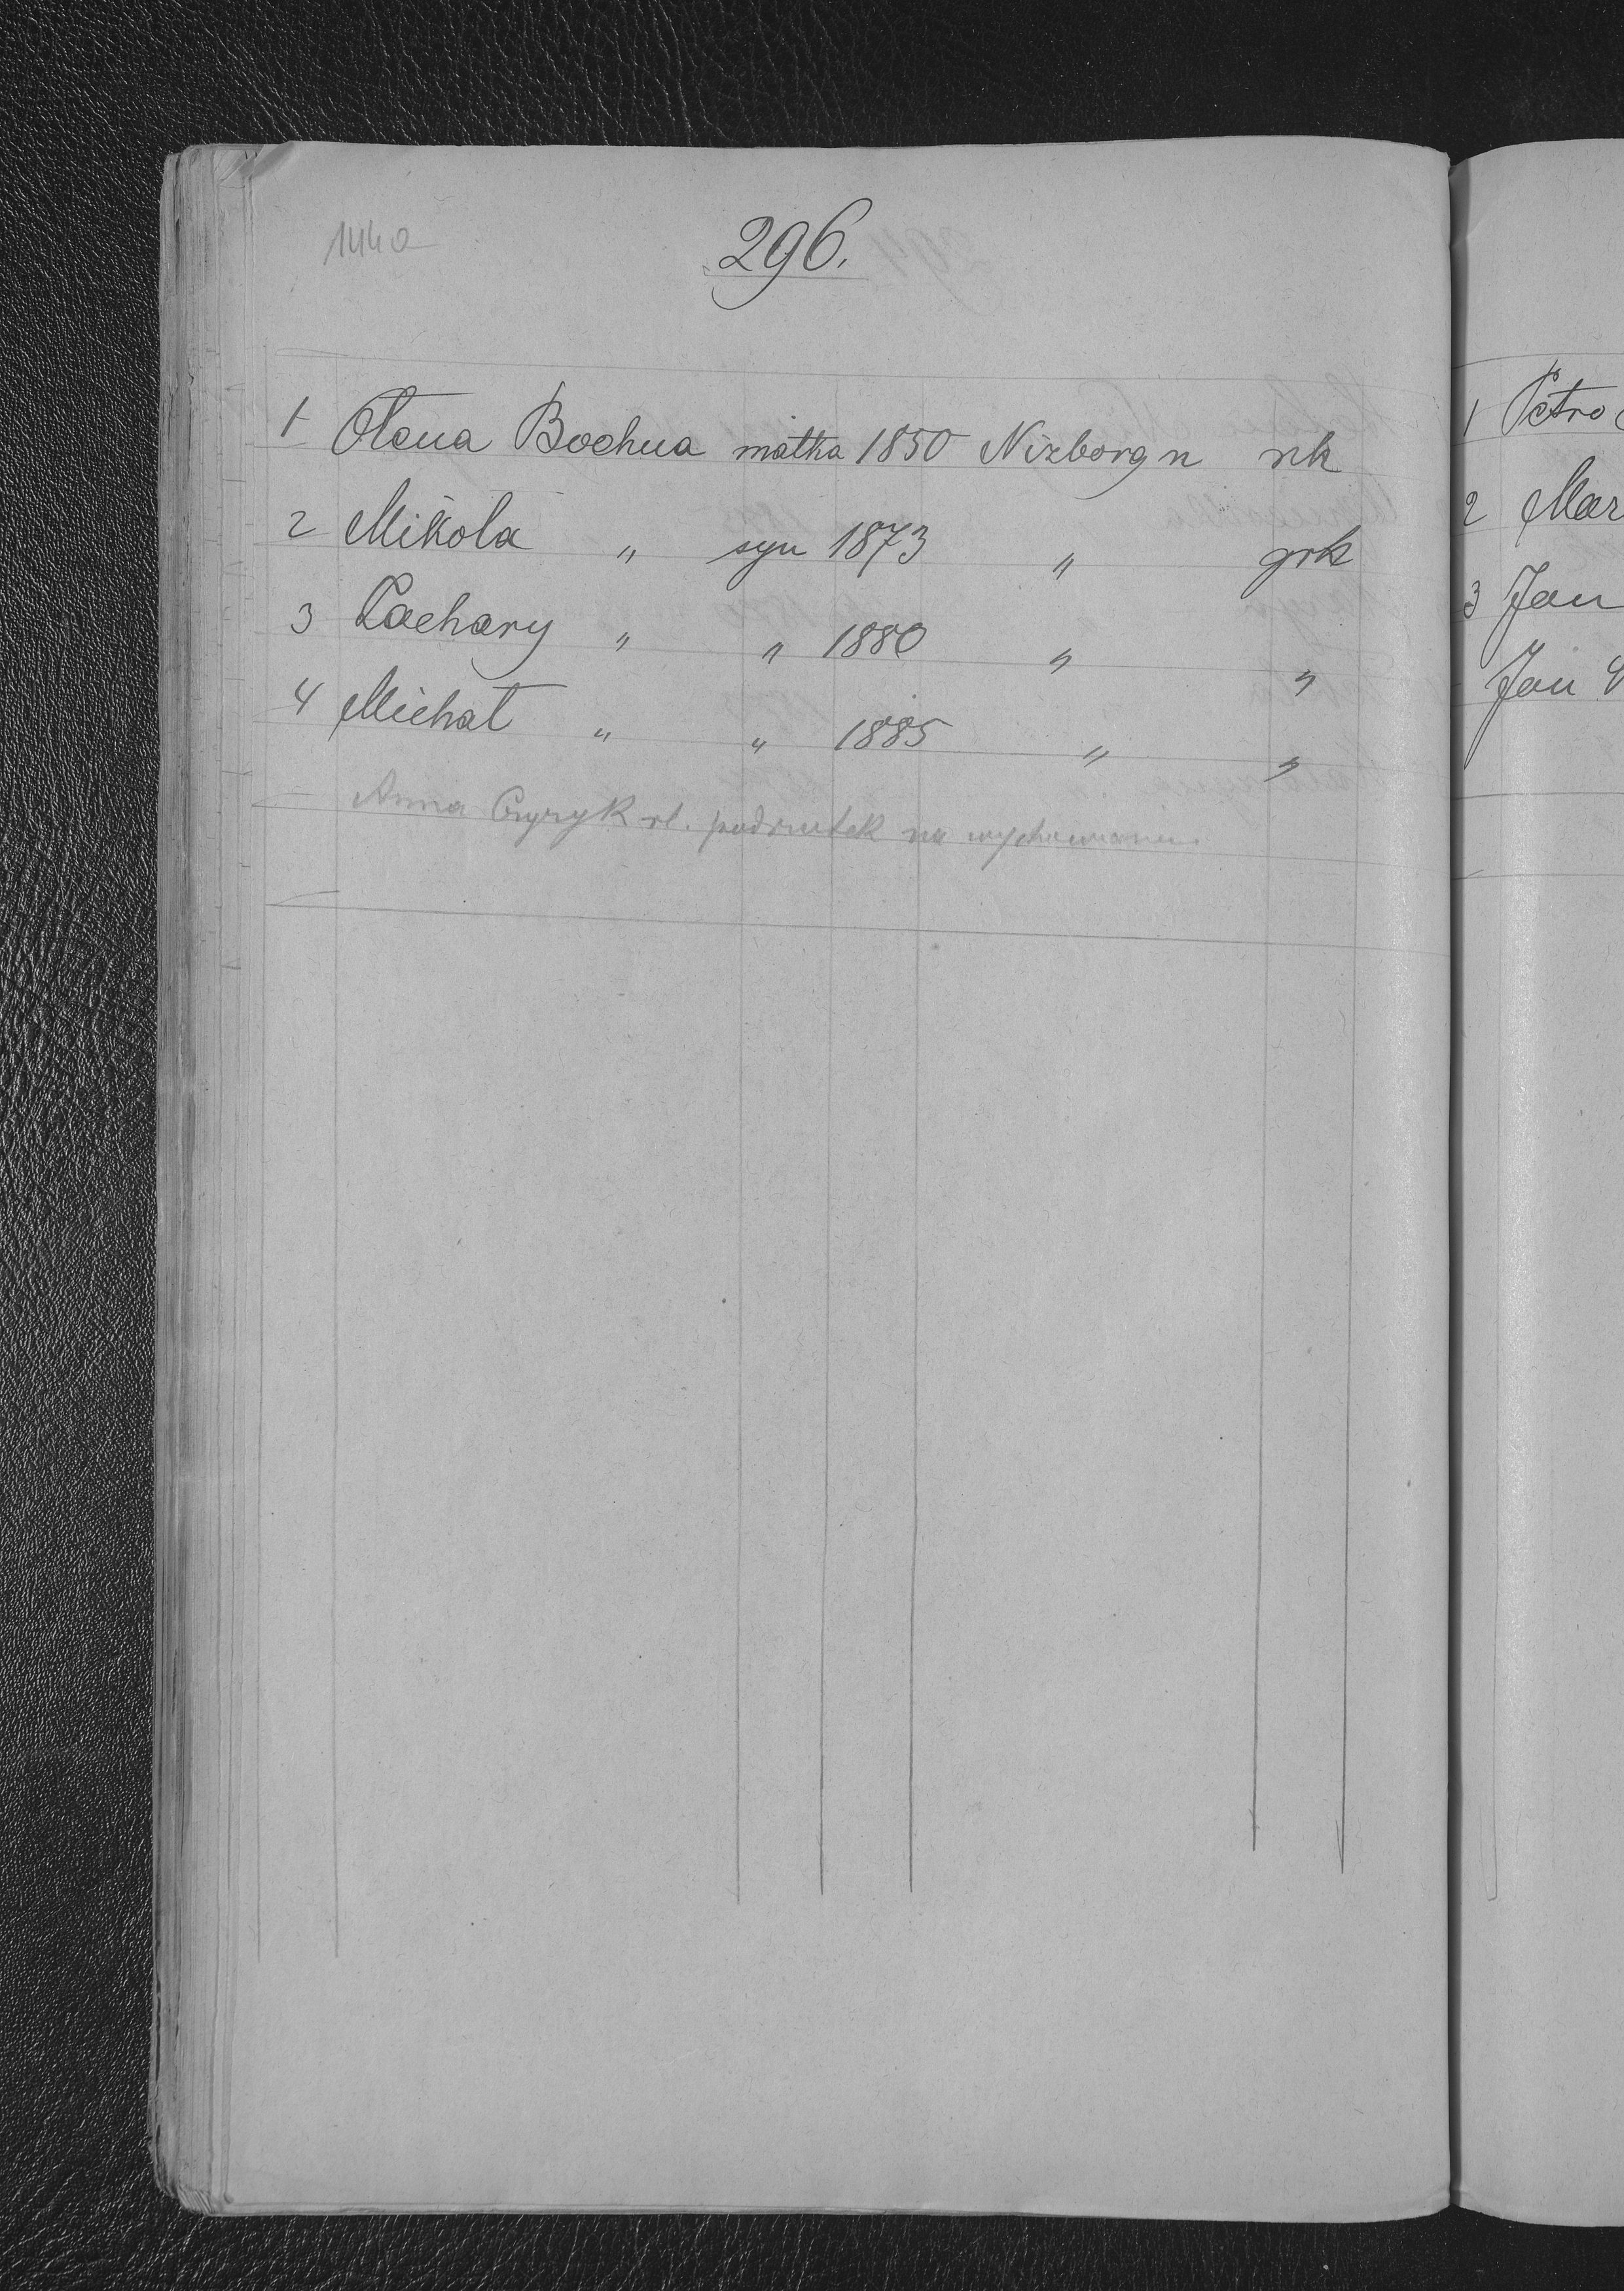 144a
296.
1 Olena Bochna matka 1850 Niżborg n rk
2 Mikola " syn 1873 " grk
3 Zachary " " 1880 " "
4 Michał " " 1885 " "
Anna Czyryk podrzutek na wychowaniu
1 Petro
2 Mar
3 Jan
Jan